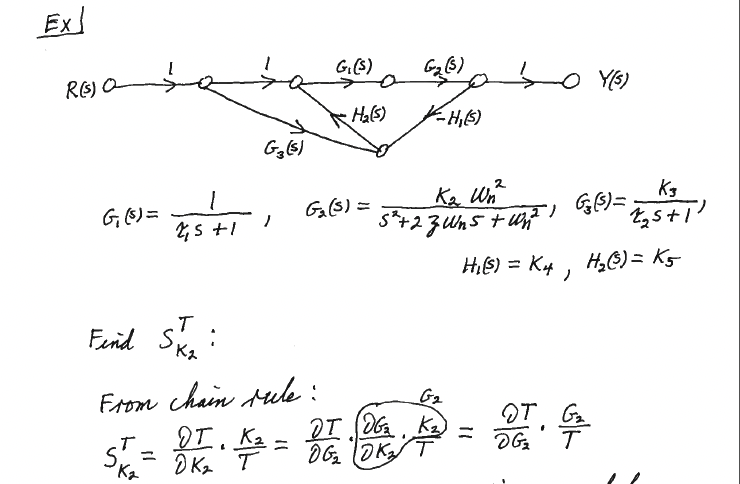 Ex
1 1 G₁(s) G₂(s) 1
R(s) Y(s)
-H₂(s) -H₁(s)
G₃(s)
G₁(s) = 1 / (τ₁s + 1), G₂(s) = K₂ωn² / (s² + 2ζωns + ωn²), G₃(s) = K₃ / (τ₂s + 1),
H₁(s) = K₄, H₂(s) = K₅
Find S^T_K₂ :
From chain rule :
G₂
S^T_K₂ = ∂T/∂K₂ · K₂/T = ∂T/∂G₂ · ∂G₂/∂K₂ · K₂/T = ∂T/∂G₂ · G₂/T